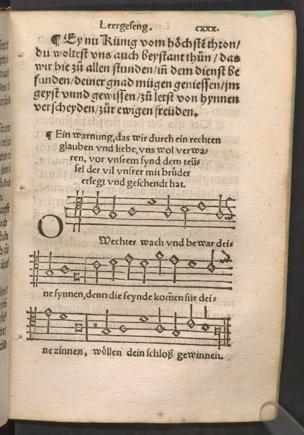 Leergeseng. cxxx.
¶ Ey nu Künig vom höchstē thron/
du woltest vns auch beystant thůn / das
wir hie zů allen stunden / in dem dienst be
funden / deiner gnad mügen geniessen / im
geyst vnnd gewissen / zů letst von hynnen
verscheyden / zůr ewigen freüden.
¶ Ein warnung, das wir durch ein rechten
glauben vnd liebe, vns wol verwa-
ren, vor vnserm fynd dem teü-
fel der vil vnser mit brüder
erlegt vnd geschendt hat.
O
Wechter wach vnd bewar dei-
ne synnen, denn die feynde kom̄en für dei-
ne zinnen, wöllen dein schloß gewinnen.